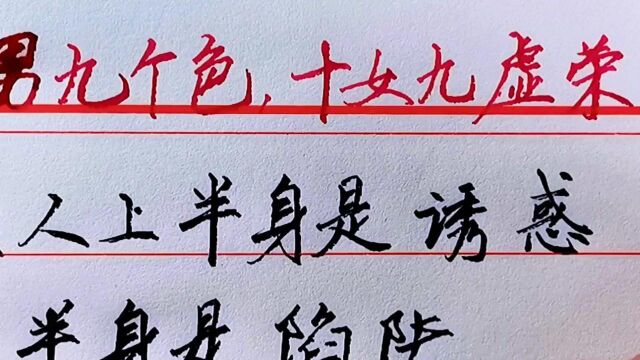 男九个色，十女九虚荣
人上半身是诱惑
半身是陷阱